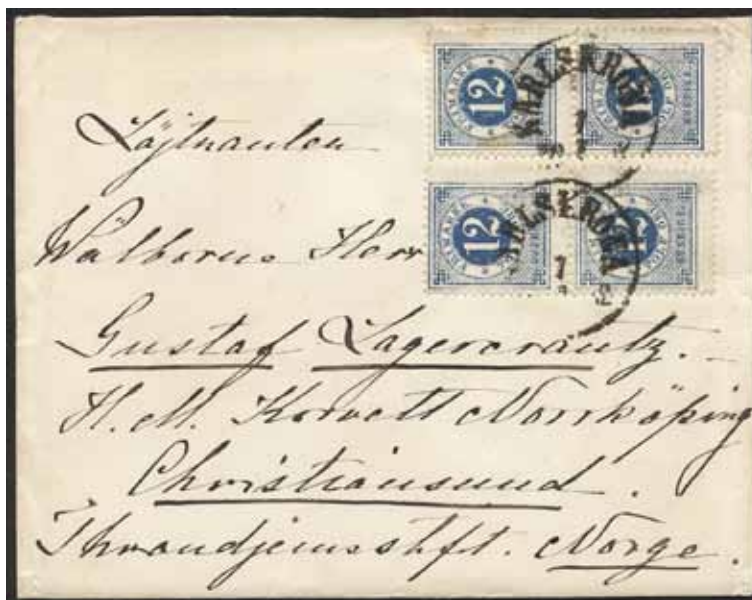 12
KARLSKRONA
1
12
KARLSKRONA
1
12
Löjtnanten
Wälborne Herr
Gustaf Lagercrantz.
H. M. Korvett Norrköping
Christiansund.
Throndjemsstift. Norge.